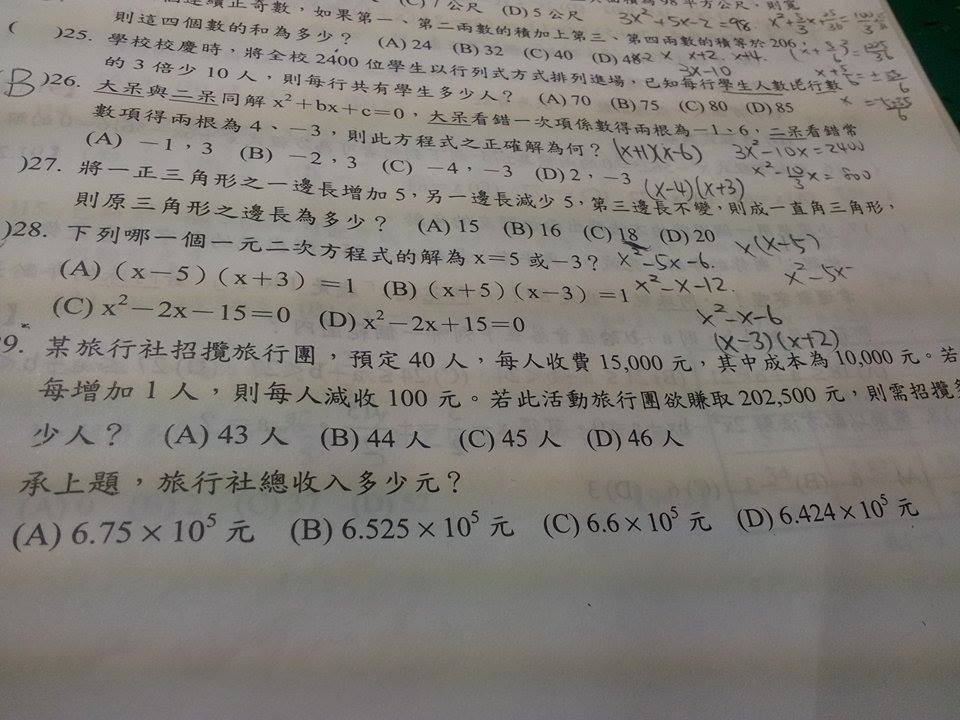 連續正奇數，如果第一、第二兩數的積加上第三、第四兩數的積等於 206，
(C) 7 公尺 (D) 5 公尺
3x²+5x-2=98
則這四個數的和為多少？ (A) 24 (B) 32 (C) 40 (D) 48
( )25. 學校校慶時，將全校 2400 位學生以行列式方式排列進場，已知每行學生人數比行數
的 3 倍少 10 人，則每行共有學生多少人？ (A) 70 (B) 75 (C) 80 (D) 85
3x-10
B )26. 大呆與二呆同解 x²+bx+c=0，大呆看錯一次項係數得兩根為－1、6，二呆看錯常
數項得兩根為 4、－3，則此方程式之正確解為何？ (x+1)(x-6) 3x²-10x=2400
(A) －1，3 (B) －2，3 (C) －4，－3 (D) 2，－3 (x-4)(x+3) x²-10/3x=800
)27. 將一正三角形之一邊長增加 5，另一邊長減少 5，第三邊長不變，則成一直角三角形，
則原三角形之邊長為多少？ (A) 15 (B) 16 (C) 18 (D) 20 x(x-5)
)28. 下列哪一個一元二次方程式的解為 x=5 或－3？ x²-5x-6. x²-5x
(A)（x－5）（x＋3）＝1 (B)（x＋5）（x－3）＝1 x²-x-12.
(C) x²－2x－15＝0 (D) x²－2x＋15＝0 x²-x-6
(x-3)(x+2)
9. 某旅行社招攬旅行團，預定 40 人，每人收費 15,000 元，其中成本為 10,000 元。若
每增加 1 人，則每人減收 100 元。若此活動旅行團欲賺取 202,500 元，則需招攬
少人？ (A) 43 人 (B) 44 人 (C) 45 人 (D) 46 人
承上題，旅行社總收入多少元？
(A) 6.75×10⁵ 元 (B) 6.525×10⁵ 元 (C) 6.6×10⁵ 元 (D) 6.424×10⁵ 元